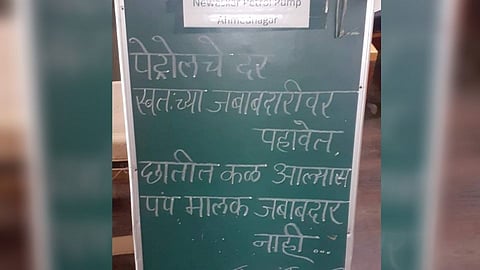 Newasker Petrol Pump
Ahmednagar
पेट्रोलचे दर
स्वतःच्या जबाबदारीवर
पहावेत.
छातीत कळ आल्यास
पंप मालक जबाबदार
नाही...